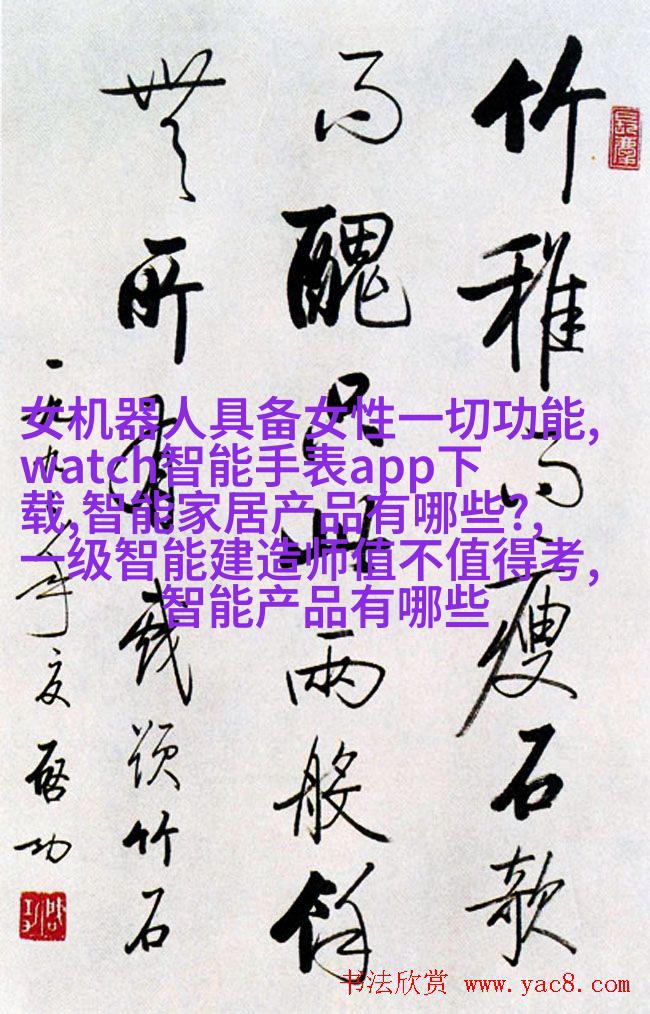 竹稚而瘦石欹
而醜只此兩般餘
無所有戲題竹石
一九年夏啓功
女机器人具备女性一切功能,
watch智能手表app下
载,智能家居产品有哪些?,
一级智能建造师值不值得考,
智能产品有哪些
书法欣赏 www.yac8.com